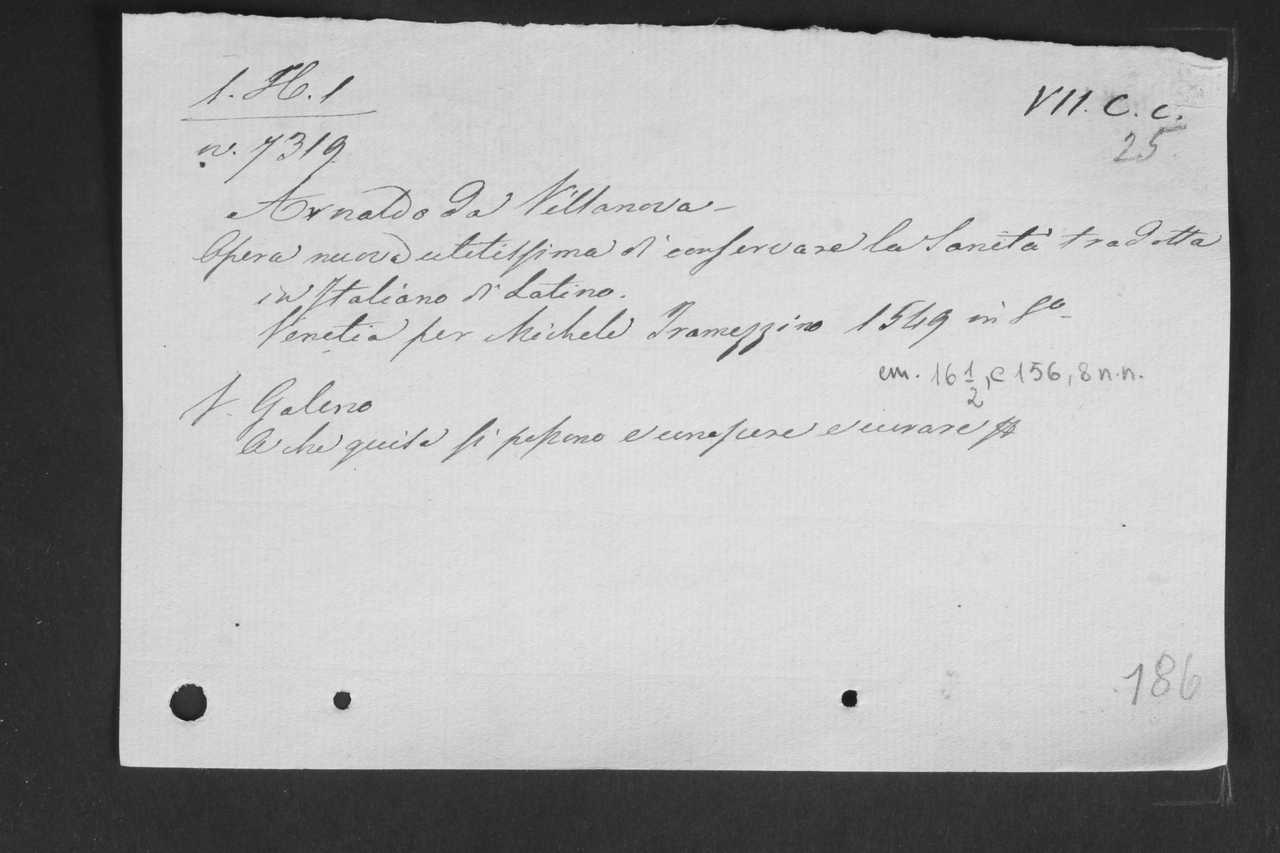 1. H. 1
VII. C. c.
n. 7319
25
Arnaldo da Villanova -
Opera nuova utilissima di conservare la Sanità tradotta
in Italiano di Latino.
Venetia per Michele Tramezzino 1549 in 8°
cm. 16 1/2, c 156, 8 n.n.
V. Galeno
A che guisa si possono e conoscere e curare
186